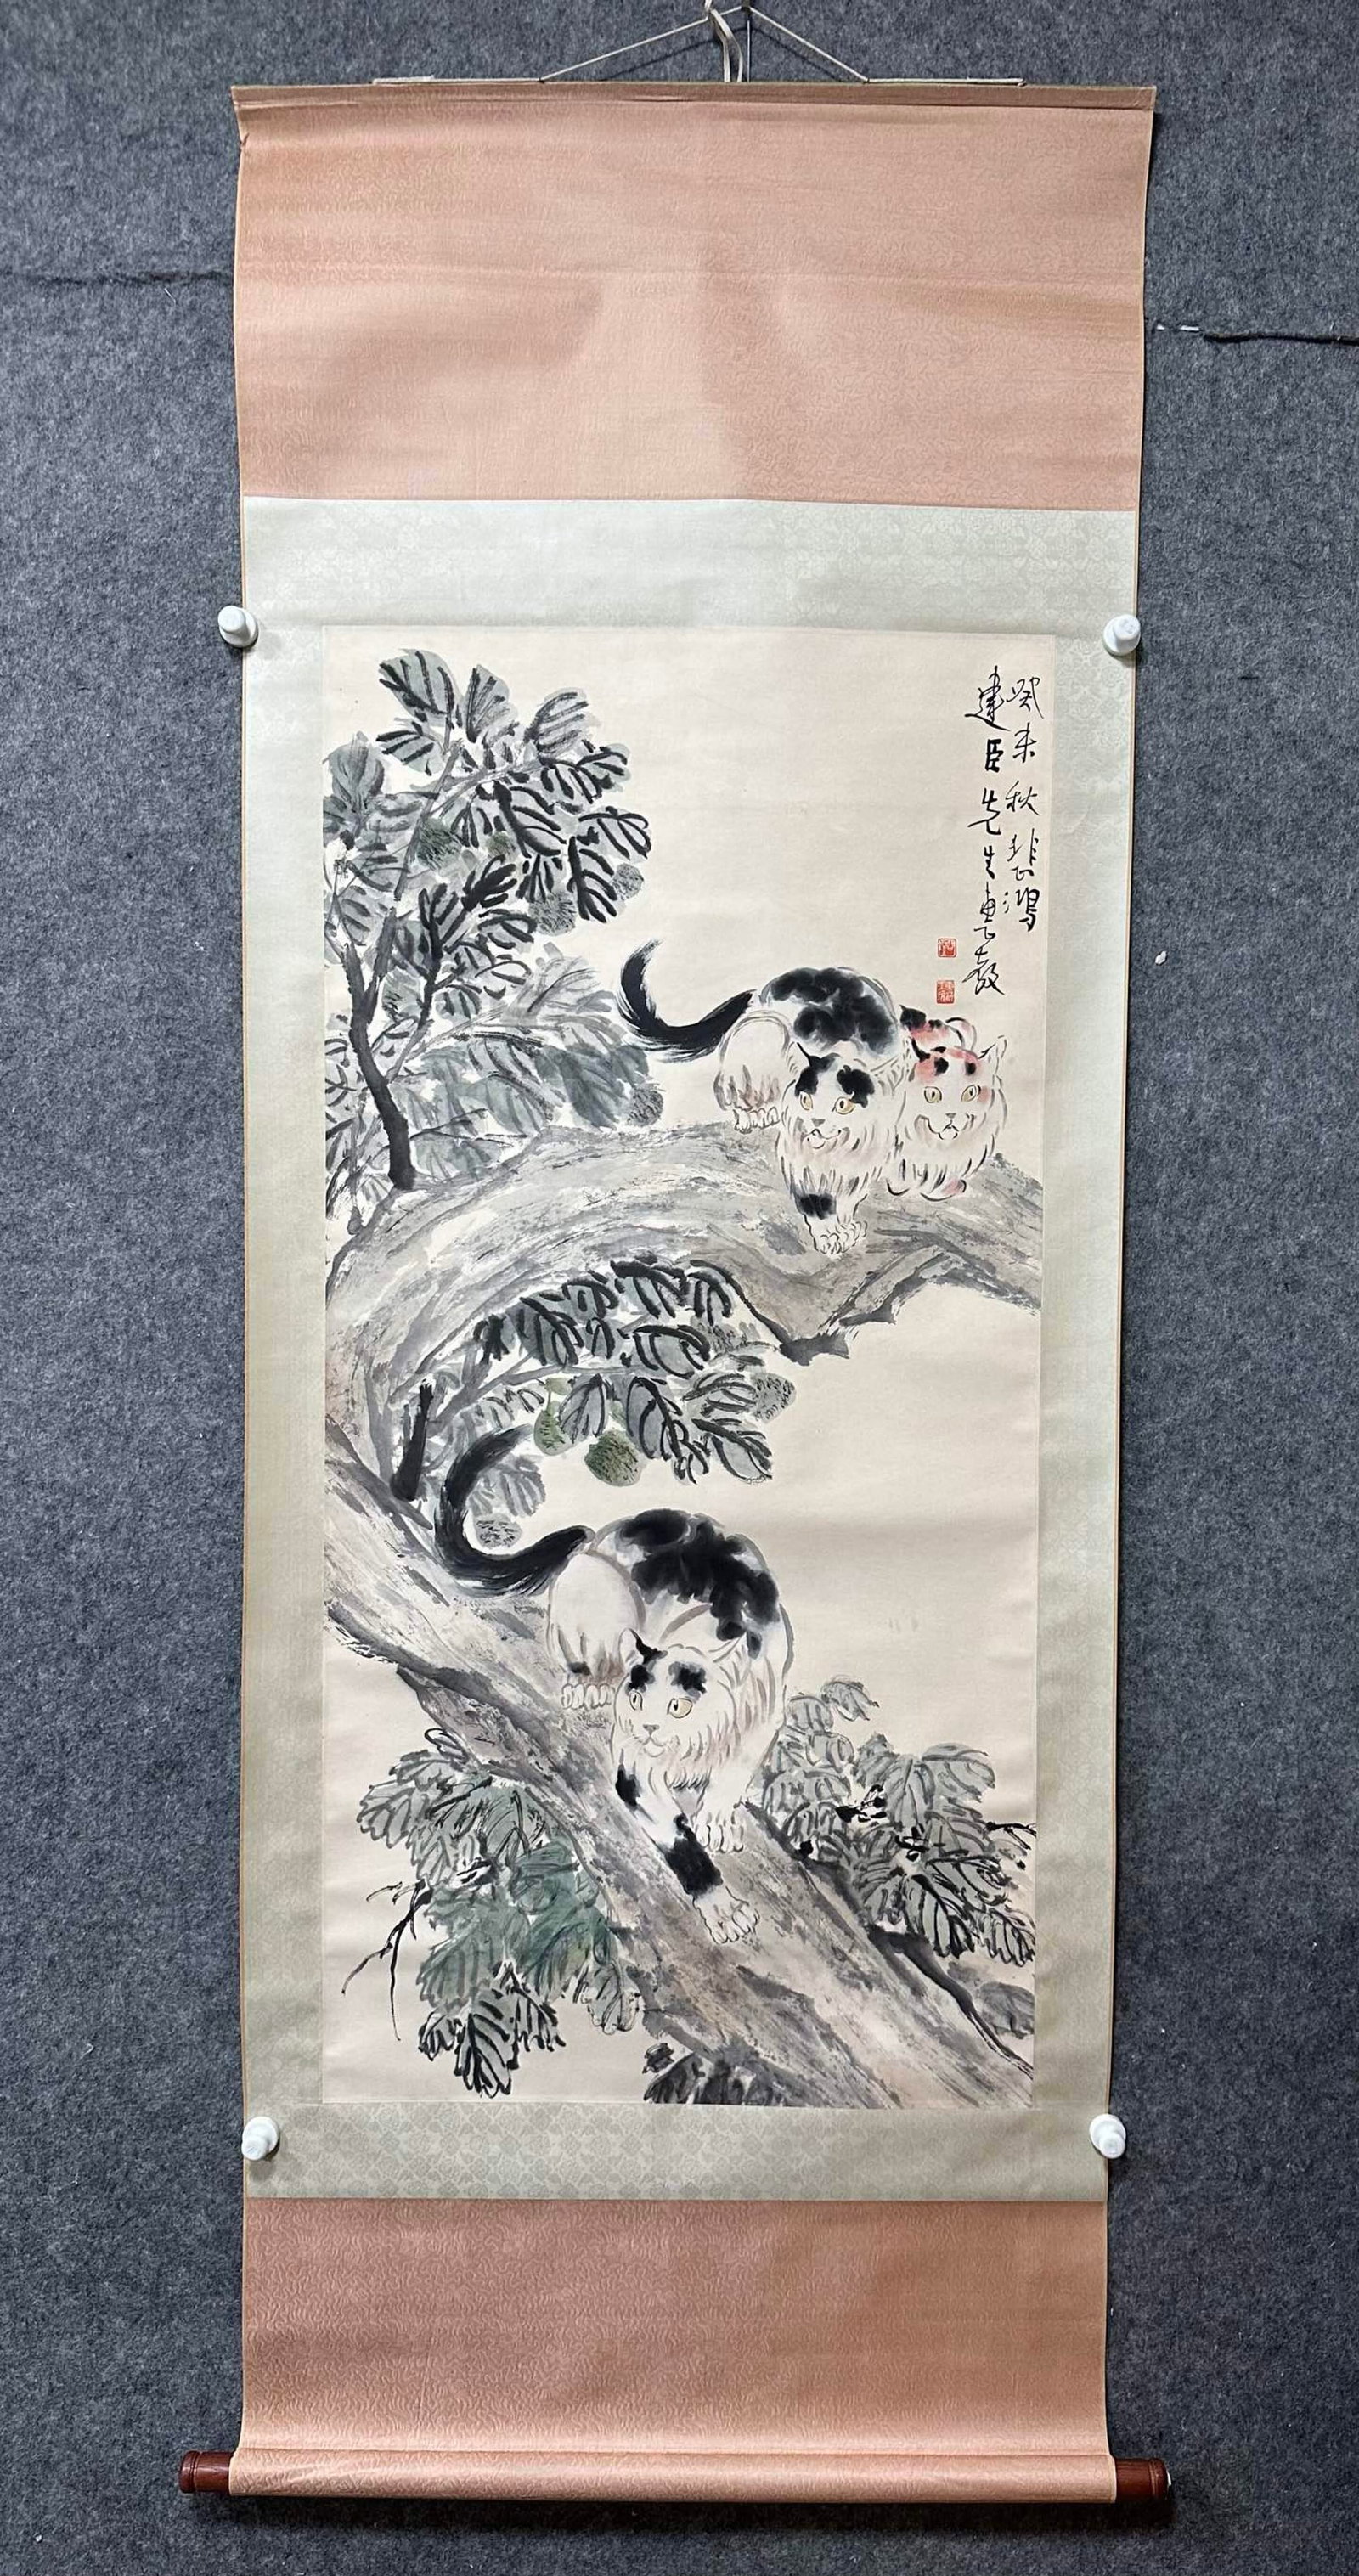 癸未秋悲鸿
建臣先生惠教